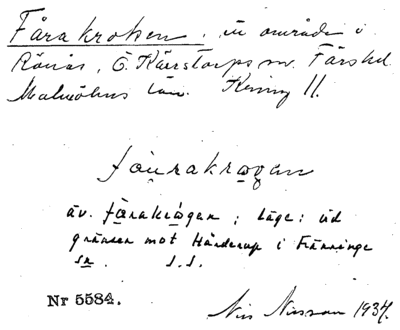 Fårakroken, ett område i
Rönås, Ö. Kärrstorps sn. Färs hd.
Malmöhus län. Kring 11.
fåurakrǫgan
äv. fårakrǫgan; läge: vid
gränsen mot Harderup i Fränninge
sn. s.s.
Nr 5584.
Nils Nilsson 1934.